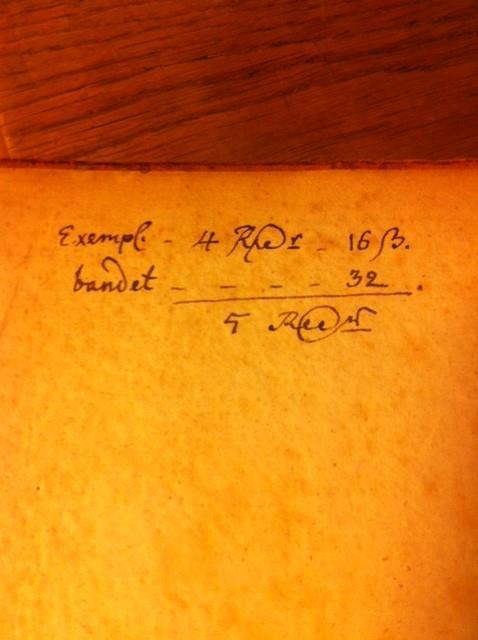 Exempl. - 4 Rdr - 16 ß.
bandet - - - - 32.
5 Rdr